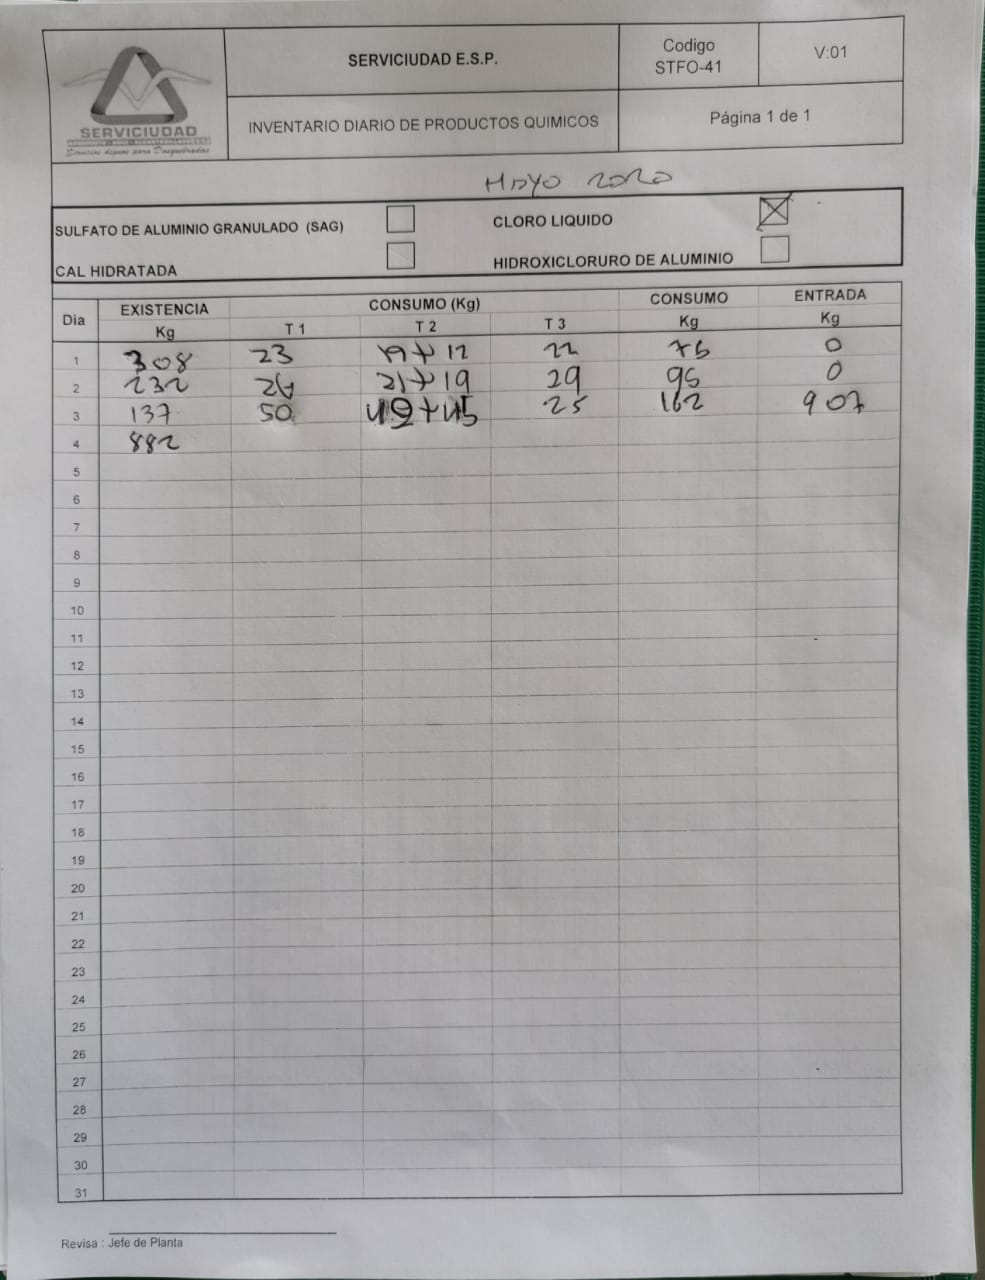 SERVICIUDAD
SERVICIUDAD E.S.P.
Codigo
STFO-41
V:01
INVENTARIO DIARIO DE PRODUCTOS QUIMICOS
Página 1 de 1
MAYO 2020
SULFATO DE ALUMINIO GRANULADO (SAG) CLORO LIQUIDO
CAL HIDRATADA HIDROXICLORURO DE ALUMINIO
Dia EXISTENCIA CONSUMO (Kg) CONSUMO ENTRADA
Kg T 1 T 2 T 3 Kg Kg
1 308 23 19+12 22 76 0
2 232 26 21+19 29 95 0
3 137 50 42+45 25 162 907
4 882
5
6
7
8
9
10
11
12
13
14
15
16
17
18
19
20
21
22
23
24
25
26
27
28
29
30
31
Revisa : Jefe de Planta